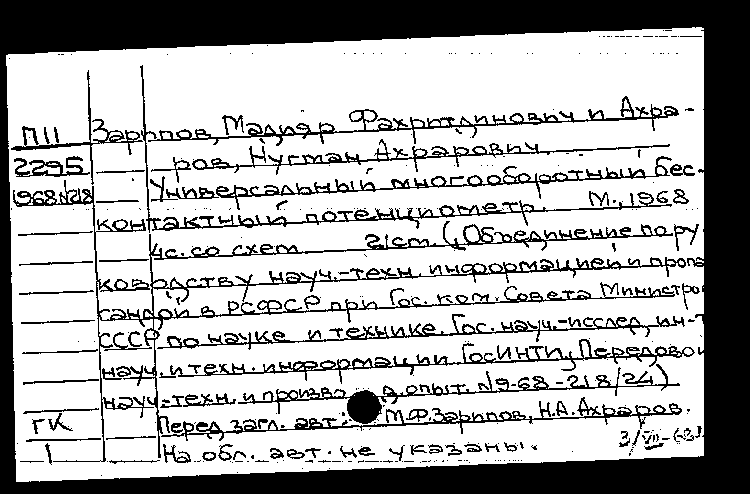 П11 Зарипов, Мадияр Фахритдинович и Ахра-
2295 ров, Нугман Ахрарович.
1968 №218 Универсальный многооборотный бес-
контактный потенциометр. М., 1968
4с. со схем. 21см. (Объединение по ру
ководству науч.-техн. информацией и пропа
гандой в РСФСР при Гос. ком. Совета Министро
СССР по науке и технике. Гос. науч.-исслед. ин-т
науч. и техн. информации ГосИНТИ, Передовой
науч.-техн. и произво д. опыт. №9-68-218/24)
ГК Перед загл. авт.: М.Ф.Зарипов, Н.А.Ахраров.
1 На обл. авт. не указаны. 3/VII-68